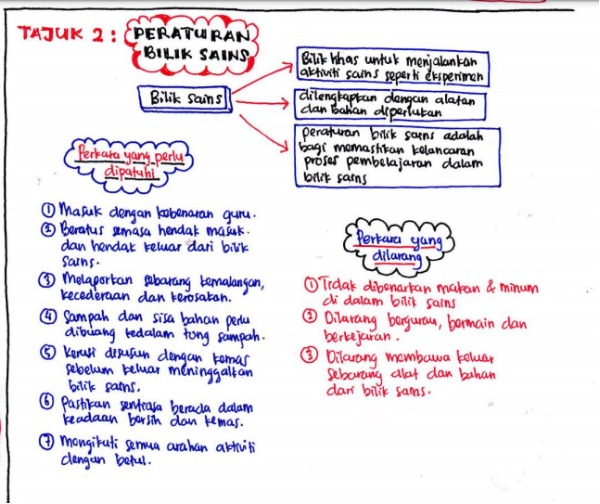 TAJUK 2 : PERATURAN
BILIK SAINS
Bilik Sains
Bilik khas untuk menjalankan
aktiviti sains seperti eksperimen
dilengkapkan dengan alatan
dan bahan diperlukan
peraturan bilik sains adalah
bagi memastikan kelancaran
proses pembelajaran dalam
bilik sains
Perkara yang perlu
dipatuhi
① Masuk dengan kebenaran guru.
② Beratus semasa hendak masuk.
dan hendak keluar dari bilik
sains.
③ Melaporkan sebarang kemalangan,
kecederaan dan kerosakan.
④ Sampah dan sisa bahan perlu
dibuang kedalam tong sampah.
⑤ Kerusi disusun dengan kemas
sebelum keluar meninggalkan
bilik sains.
⑥ Pastikan sentiasa berada dalam
keadaan bersih dan kemas.
⑦ Mengikuti semua arahan aktiviti
dengan betul.
Perkara yang
dilarang
① Tidak dibenarkan makan & minum
di dalam bilik sains
② Dilarang bergurau, bermain dan
berkejaran.
③ Dilarang membawa keluar
sebarang alat dan bahan
dari bilik sains.